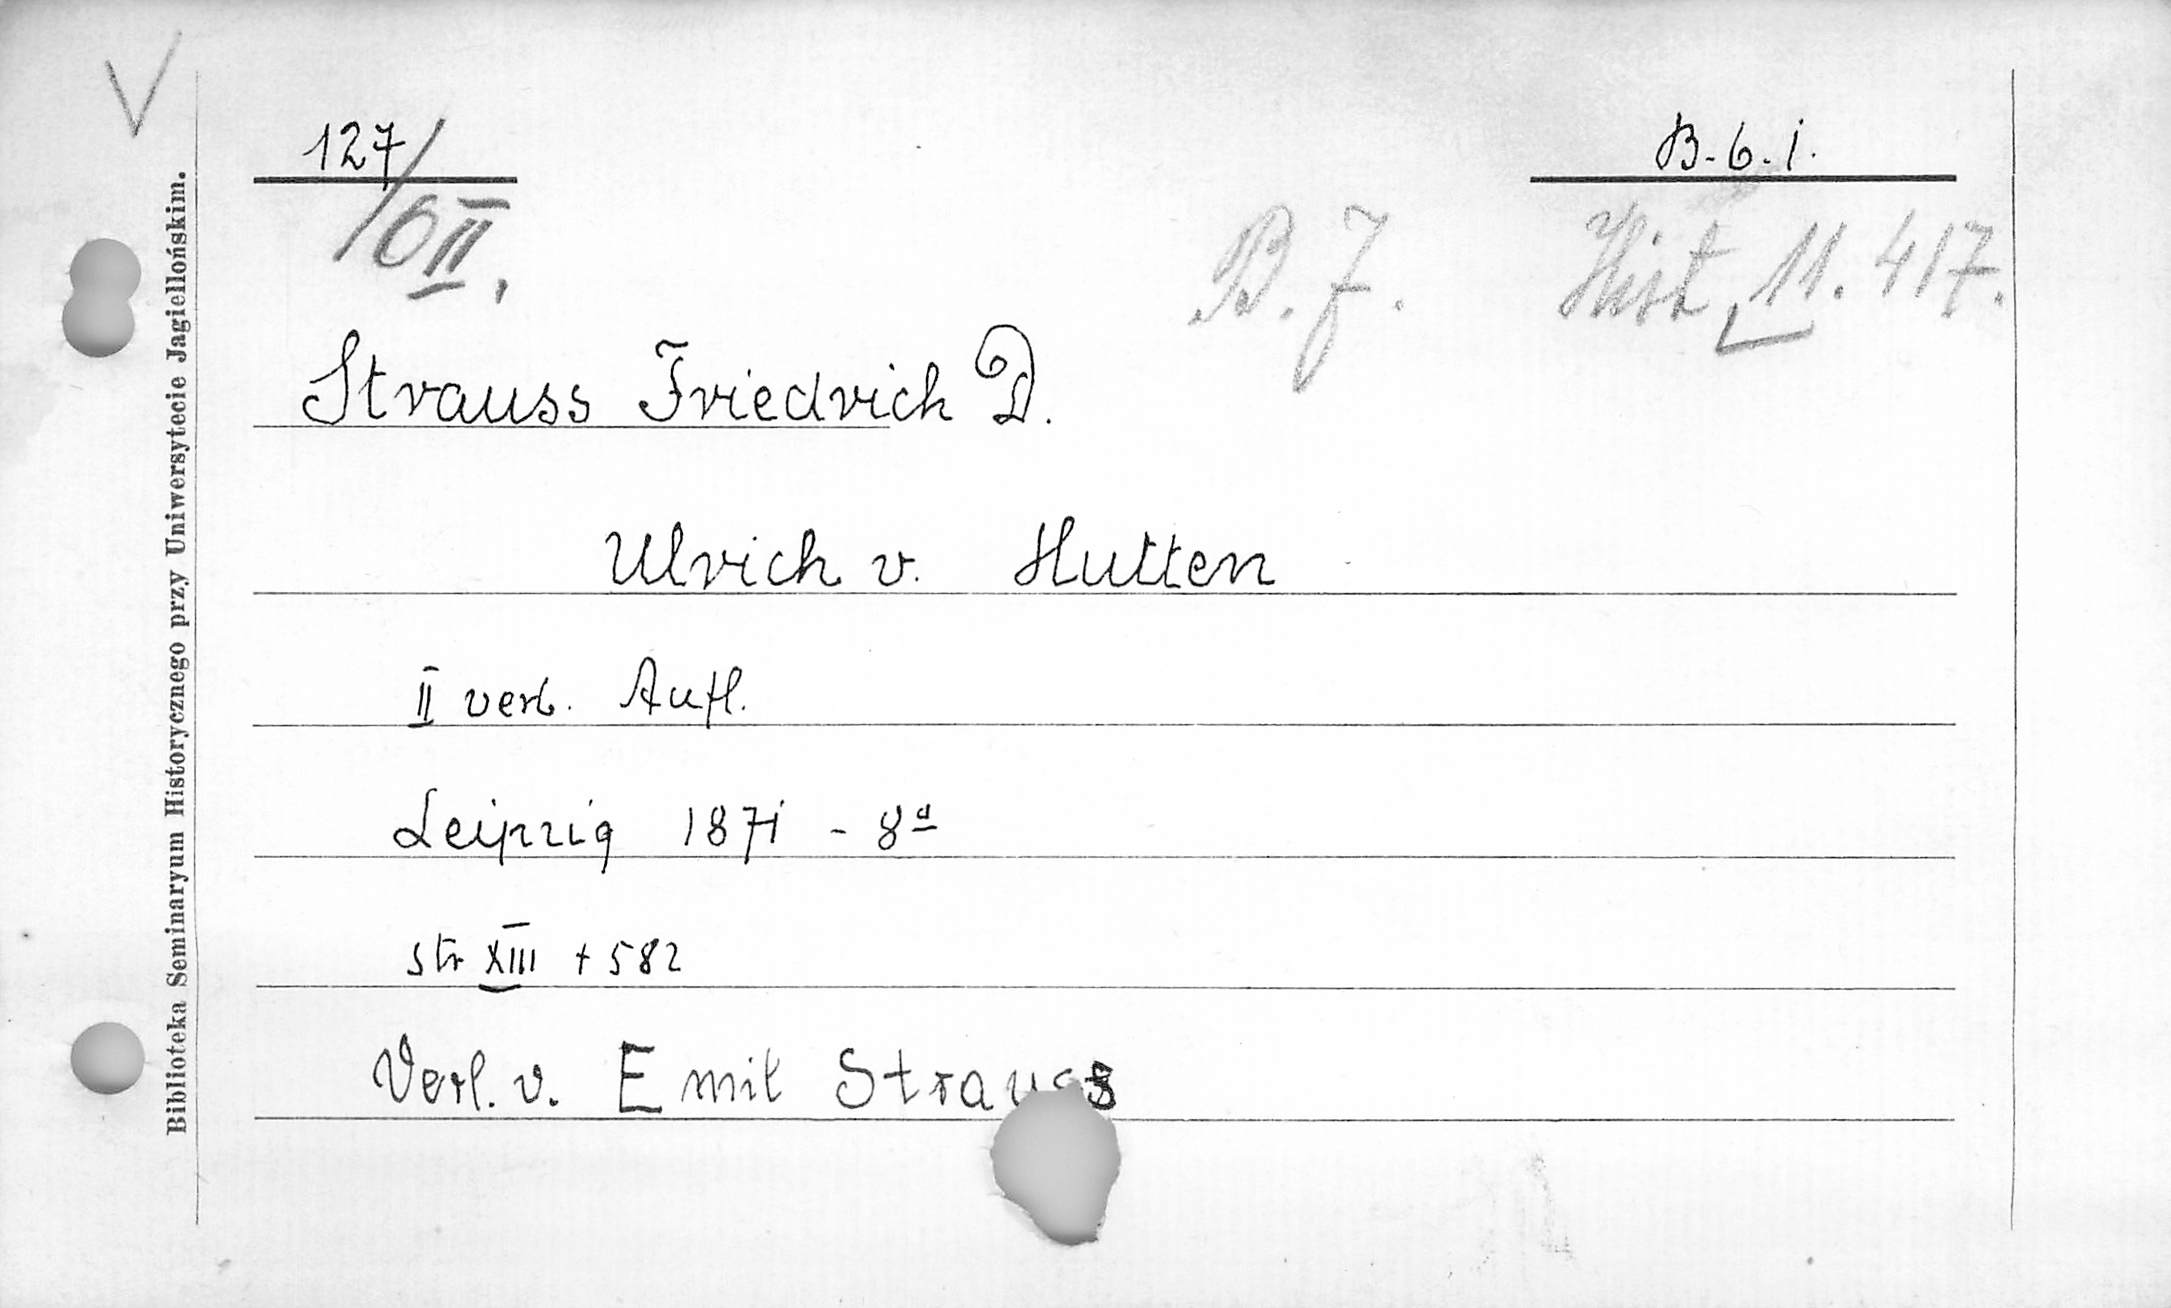 V
127/6II.
B-6-1.
B. J. Hist. 11. 417.
Strauss Friedrich D.
Ulrich v. Hutten
II verb. Aufl.
Leipzig 1871 - 8º
str XIII + 582
Verl. v. Emil Strauss
Biblioteka Seminaryum Historycznego przy Uniwersytecie Jagiellońskim.